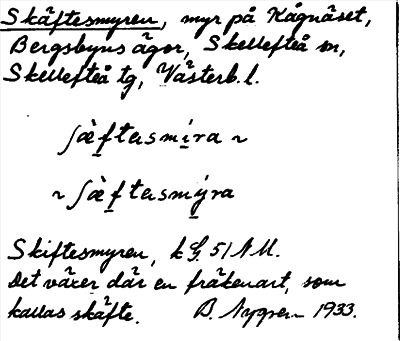 Skäftesmyren, myr på Kågnäset,
Bergsbyns ägor, Skellefteå sn,
Skellefteå tg, Västerb. l.
ʃæ̀ftɛsmira ~
~ ʃæ̀ftɛsmýra
Skiftesmyren, k 51 NU.
Det växer där en fräkenart, som
kallas skäfte. B. Nygren 1933.